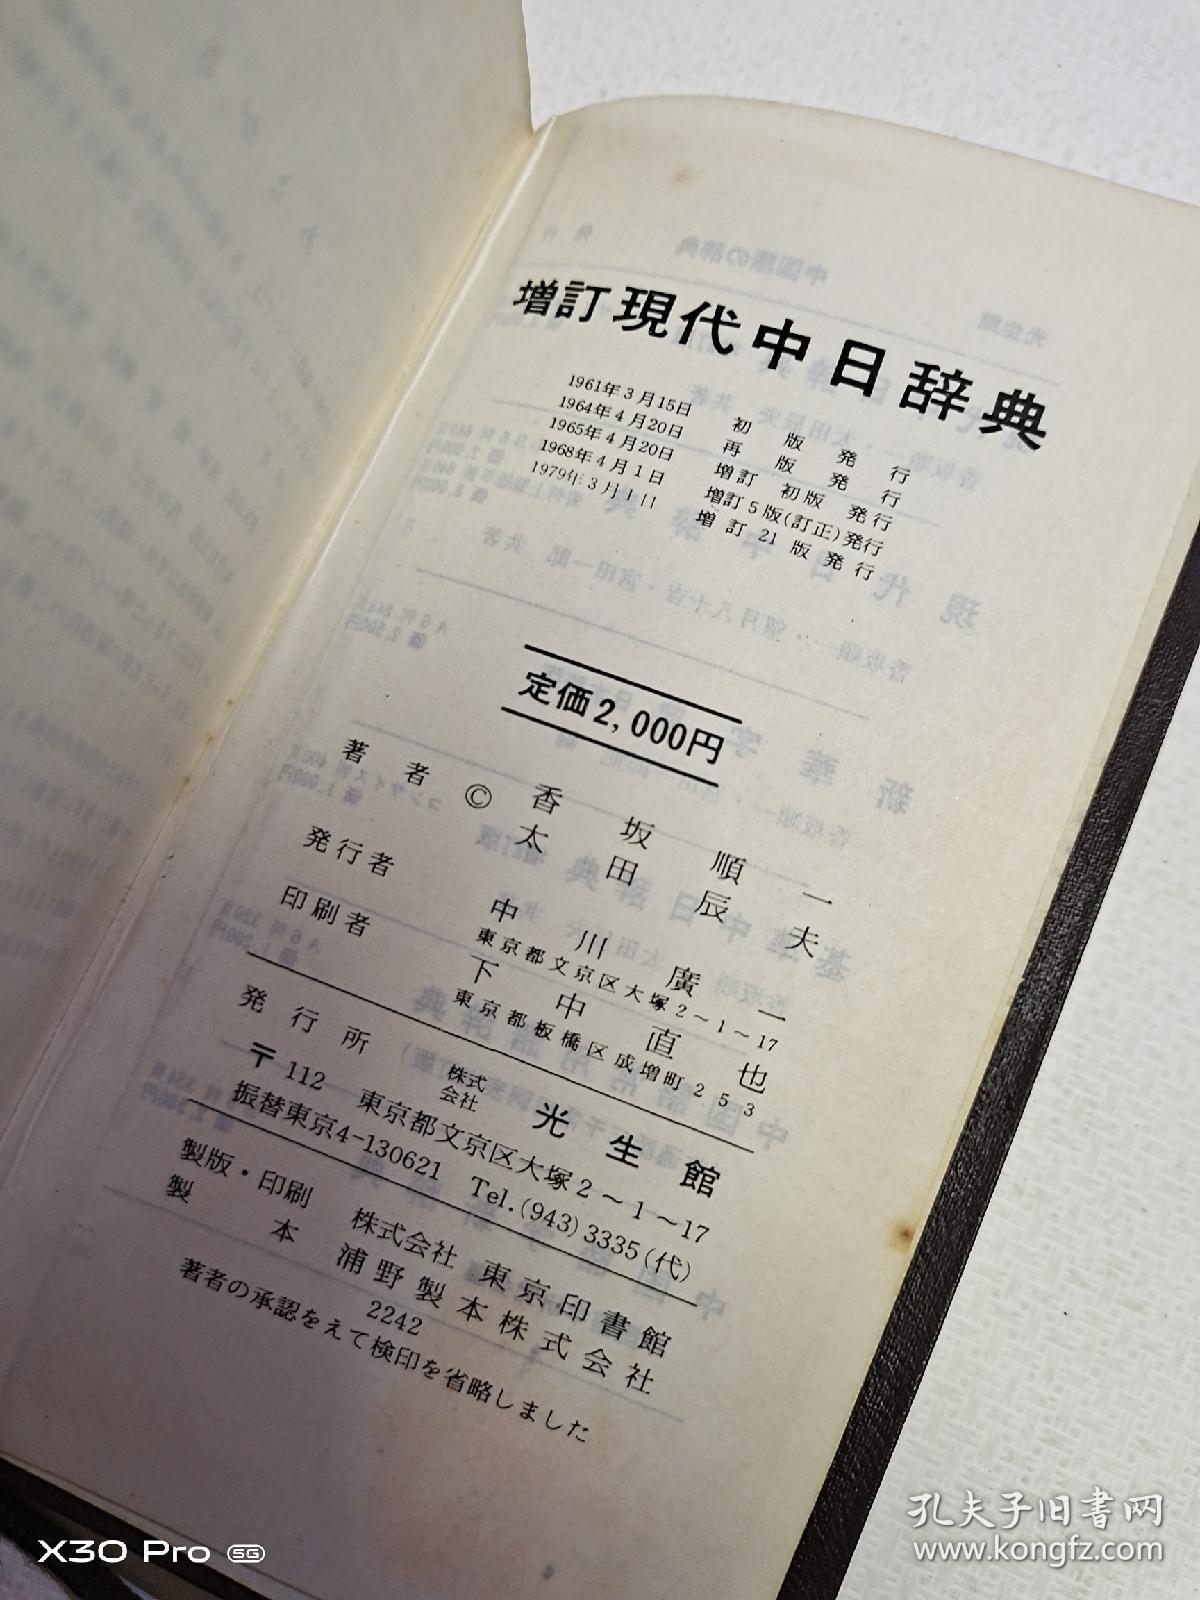 増訂 現代中日辞典
1961年3月15日 初版発行
1964年4月20日 再版発行
1965年4月20日 増訂 初版 発行
1968年4月1日 増訂5版(訂正)発行
1979年3月1日 増訂21版発行
定価2,000円
著者 © 香坂順一
太田辰夫
発行者 中川廣一
東京都文京区大塚2~1~17
印刷者 下中直也
東京都板橋区成増町253
発行所 株式会社 光生館
〒112 東京都文京区大塚2~1~17
振替東京4-130621 Tel.(943)3335(代)
製版・印刷 株式会社 東京印書館
製本 浦野製本株式会社
2242
著者の承認をえて検印を省略しました
孔夫子旧书网
www.kongfz.com
X30 Pro 5G